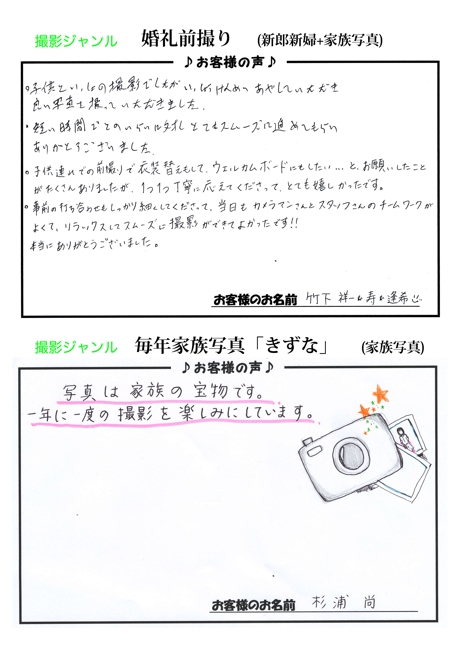 撮影ジャンル 婚礼前撮り (新郎新婦+家族写真)
♪お客様の声♪
・子供といっしょの撮影でしたがいっしょけんめいあやしていただき
良い写真を撮っていただきました。
・短い時間でとてもスムーズに進めてもらい
ありがとうございました。
・子供連れでの前撮りで衣装替えもして、ウェルカムボードにもしたい…と、お願いしたこと
がたくさんありましたが、1つ1つ丁寧に応えてくださって、とても嬉しかったです。
・事前の打ち合わせもしっかり細かくしてくださって、当日もカメラマンさんとスタッフさんのチームワークが
よくて、リラックスしてスムーズに撮影ができてよかったです!!
本当にありがとうございました。
お客様のお名前 竹下 祥一&寿&逢希
撮影ジャンル 毎年家族写真「きずな」 (家族写真)
♪お客様の声♪
写真は家族の宝物です。
一年に一度の撮影を楽しみにしています。
お客様のお名前 杉浦 尚